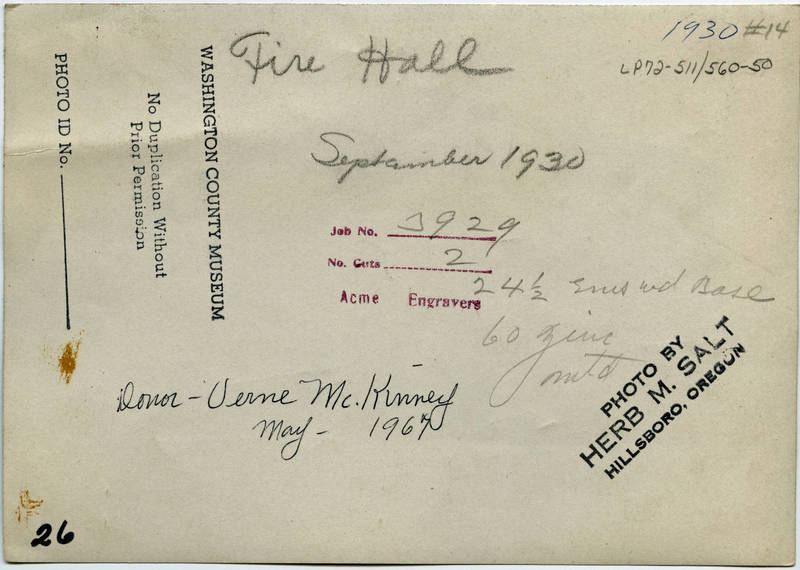 1930 #14
LP72-511/560-50
Fire Hall
September 1930
PHOTO ID No.
No Duplication Without
Prior Permission
WASHINGTON COUNTY MUSEUM
Job No. 3929
No. Cuts 2
Acme Engravers
24½ Ems wd Base
60 zinc
mtd
Donor - Verne McKinney
May - 1967
PHOTO BY
HERB M. SALT
HILLSBORO, OREGON
26